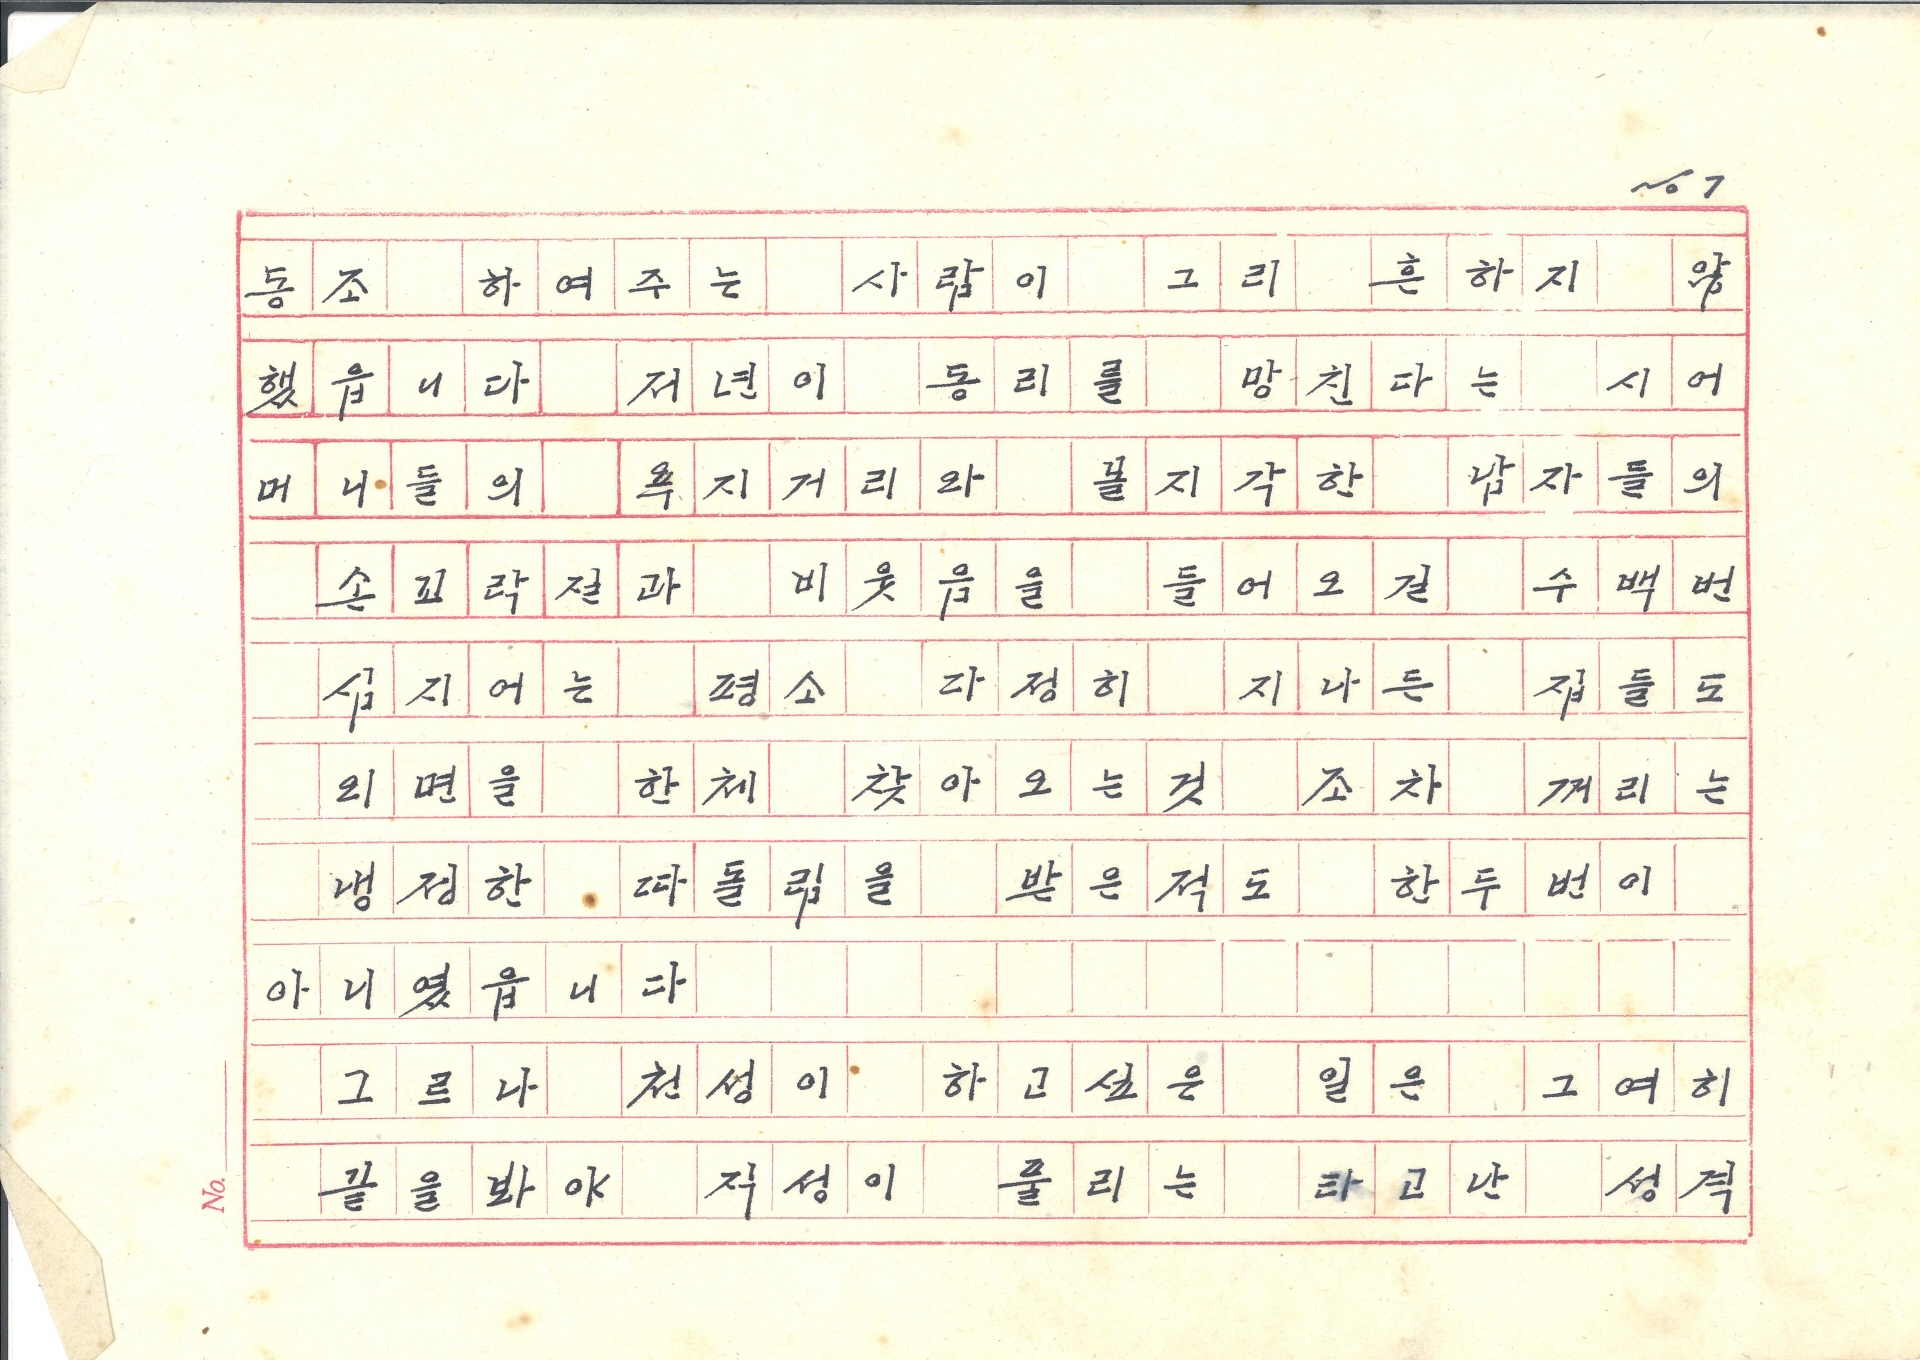 No 7
동조 하여주는 사람이 그리 흔하지 않
했읍니다 저년이 동리를 망친다는 시어
머니들의 욕지거리와 몰지각한 남자들의
손꾀락절과 비웃음을 들어오길 수백번
심지어는 평소 다정히 지나든 집들도
외면을 한체 찾아오는것 조차 꺼리는
냉정한 따돌림을 받은적도 한두번이
아니였읍니다
그르나 천성이 하고싶은 일은 그여히
끝을봐야 직성이 풀리는 타고난 성격
No.